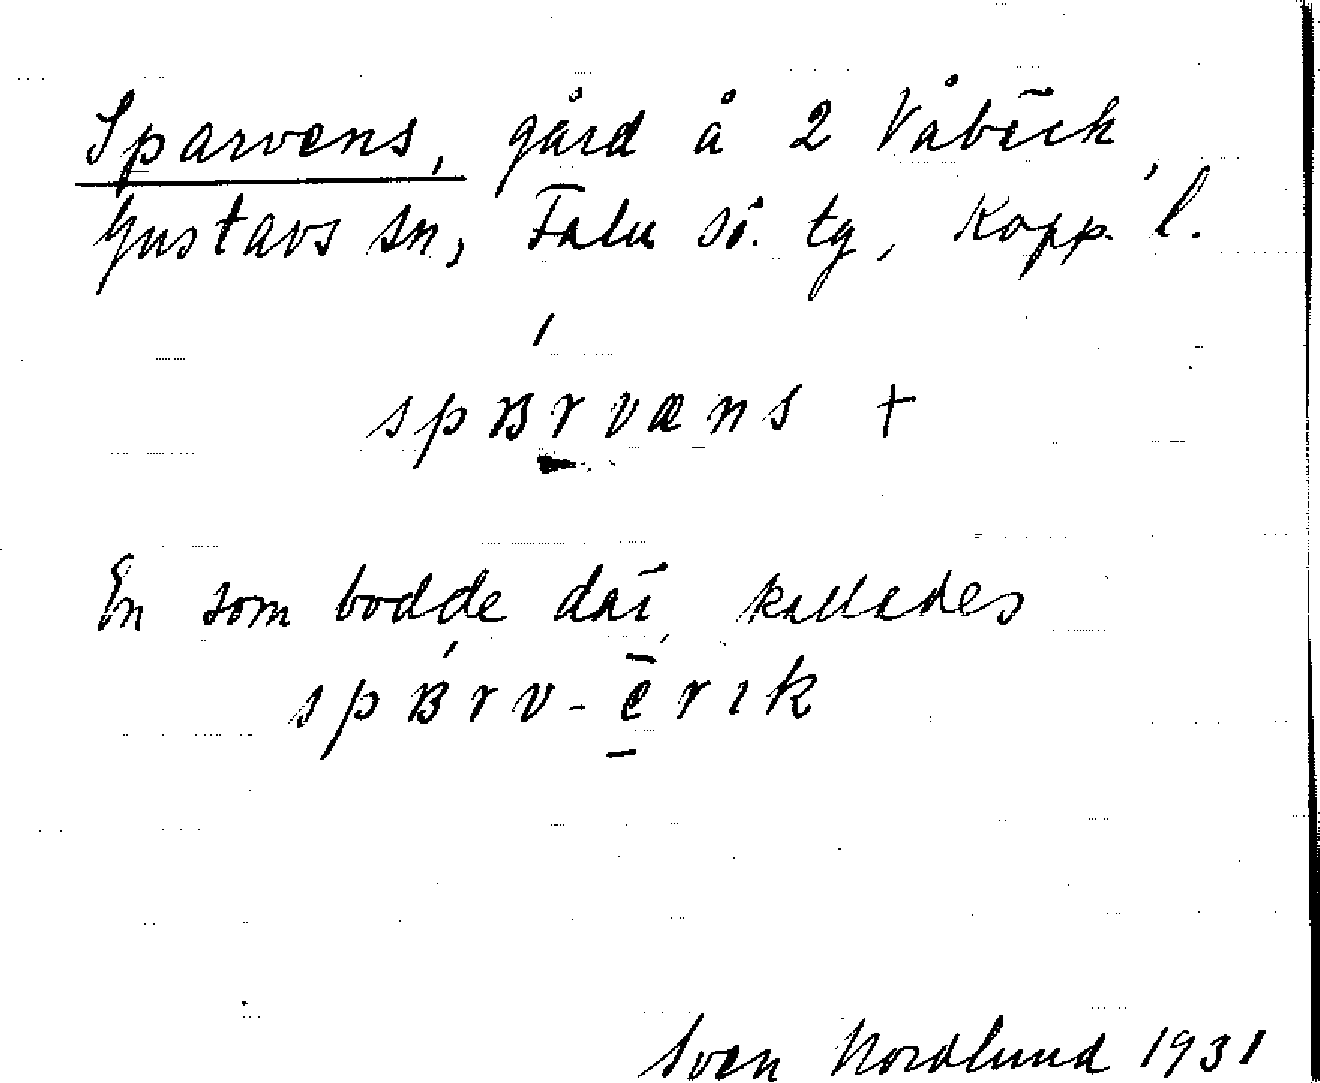 Sparvens, gård å 2 Våbäck,
Gustavs sn, Falu sö. tg, Kopp. l.
spʙrvæns +
En som bodde där, kallades
spʙ́rv-ērık
Sven Nordlund 1931